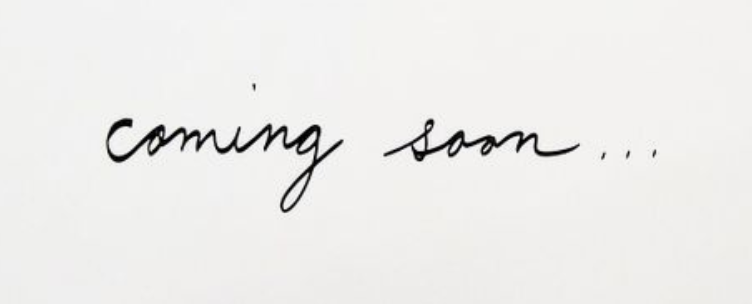 coming soon...